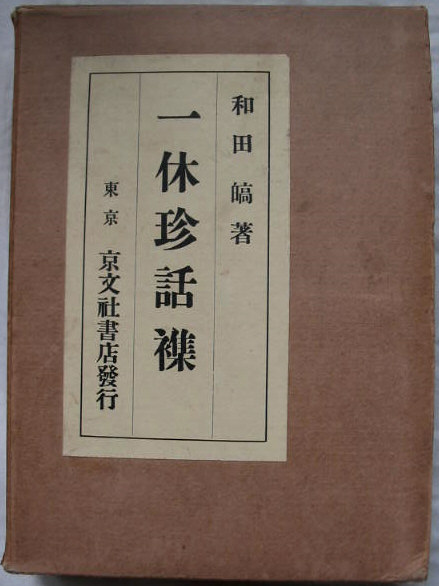 和田皜著
一休珍話襍
東京 京文社書店發行